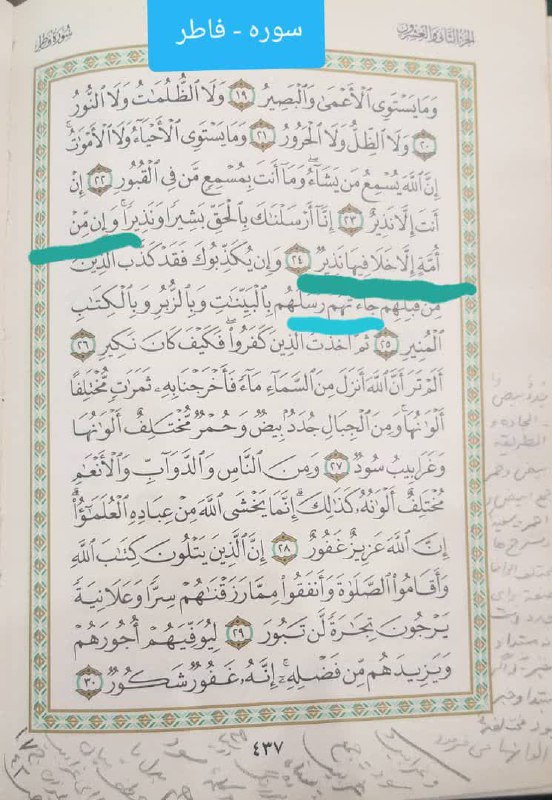 سوره - فاطر
الجزء الثاني والعشرون
سورة فاطر
وَمَا يَسْتَوِى ٱلْأَعْمَىٰ وَٱلْبَصِيرُ ١٩ وَلَا ٱلظُّلُمَٰتُ وَلَا ٱلنُّورُ
٢٠ وَلَا ٱلظِّلُّ وَلَا ٱلْحَرُورُ ٢١ وَمَا يَسْتَوِى ٱلْأَحْيَآءُ وَلَا ٱلْأَمْوَٰتُ ۚ
إِنَّ ٱللَّهَ يُسْمِعُ مَن يَشَآءُ ۖ وَمَآ أَنتَ بِمُسْمِعٍ مَّن فِى ٱلْقُبُورِ ٢٢ إِنْ
أَنتَ إِلَّا نَذِيرٌ ٢٣ إِنَّآ أَرْسَلْنَٰكَ بِٱلْحَقِّ بَشِيرًا وَنَذِيرًا ۚ وَإِن مِّنْ
أُمَّةٍ إِلَّا خَلَا فِيهَا نَذِيرٌ ٢٤ وَإِن يُكَذِّبُوكَ فَقَدْ كَذَّبَ ٱلَّذِينَ
مِن قَبْلِهِمْ جَآءَتْهُمْ رُسُلُهُم بِٱلْبَيِّنَٰتِ وَبِٱلزُّبُرِ وَبِٱلْكِتَٰبِ
ٱلْمُنِيرِ ٢٥ ثُمَّ أَخَذْتُ ٱلَّذِينَ كَفَرُوا۟ ۖ فَكَيْفَ كَانَ نَكِيرِ ٢٦
أَلَمْ تَرَ أَنَّ ٱللَّهَ أَنزَلَ مِنَ ٱلسَّمَآءِ مَآءً فَأَخْرَجْنَا بِهِۦ ثَمَرَٰتٍ مُّخْتَلِفًا
أَلْوَٰنُهَا ۚ وَمِنَ ٱلْجِبَالِ جُدَدٌۢ بِيضٌ وَحُمْرٌ مُّخْتَلِفٌ أَلْوَٰنُهَا
وَغَرَابِيبُ سُودٌ ٢٧ وَمِنَ ٱلنَّاسِ وَٱلدَّوَآبِّ وَٱلْأَنْعَٰمِ
مُخْتَلِفٌ أَلْوَٰنُهُۥ كَذَٰلِكَ ۗ إِنَّمَا يَخْشَى ٱللَّهَ مِنْ عِبَادِهِ ٱلْعُلَمَٰٓؤُا۟ ۗ
إِنَّ ٱللَّهَ عَزِيزٌ غَفُورٌ ٢٨ إِنَّ ٱلَّذِينَ يَتْلُونَ كِتَٰبَ ٱللَّهِ
وَأَقَامُوا۟ ٱلصَّلَوٰةَ وَأَنفَقُوا۟ مِمَّا رَزَقْنَٰهُمْ سِرًّا وَعَلَانِيَةً
يَرْجُونَ تِجَٰرَةً لَّن تَبُورَ ٢٩ لِيُوَفِّيَهُمْ أُجُورَهُمْ
وَيَزِيدَهُم مِّن فَضْلِهِۦٓ ۚ إِنَّهُۥ غَفُورٌ شَكُورٌ ٣٠
٤٣٧